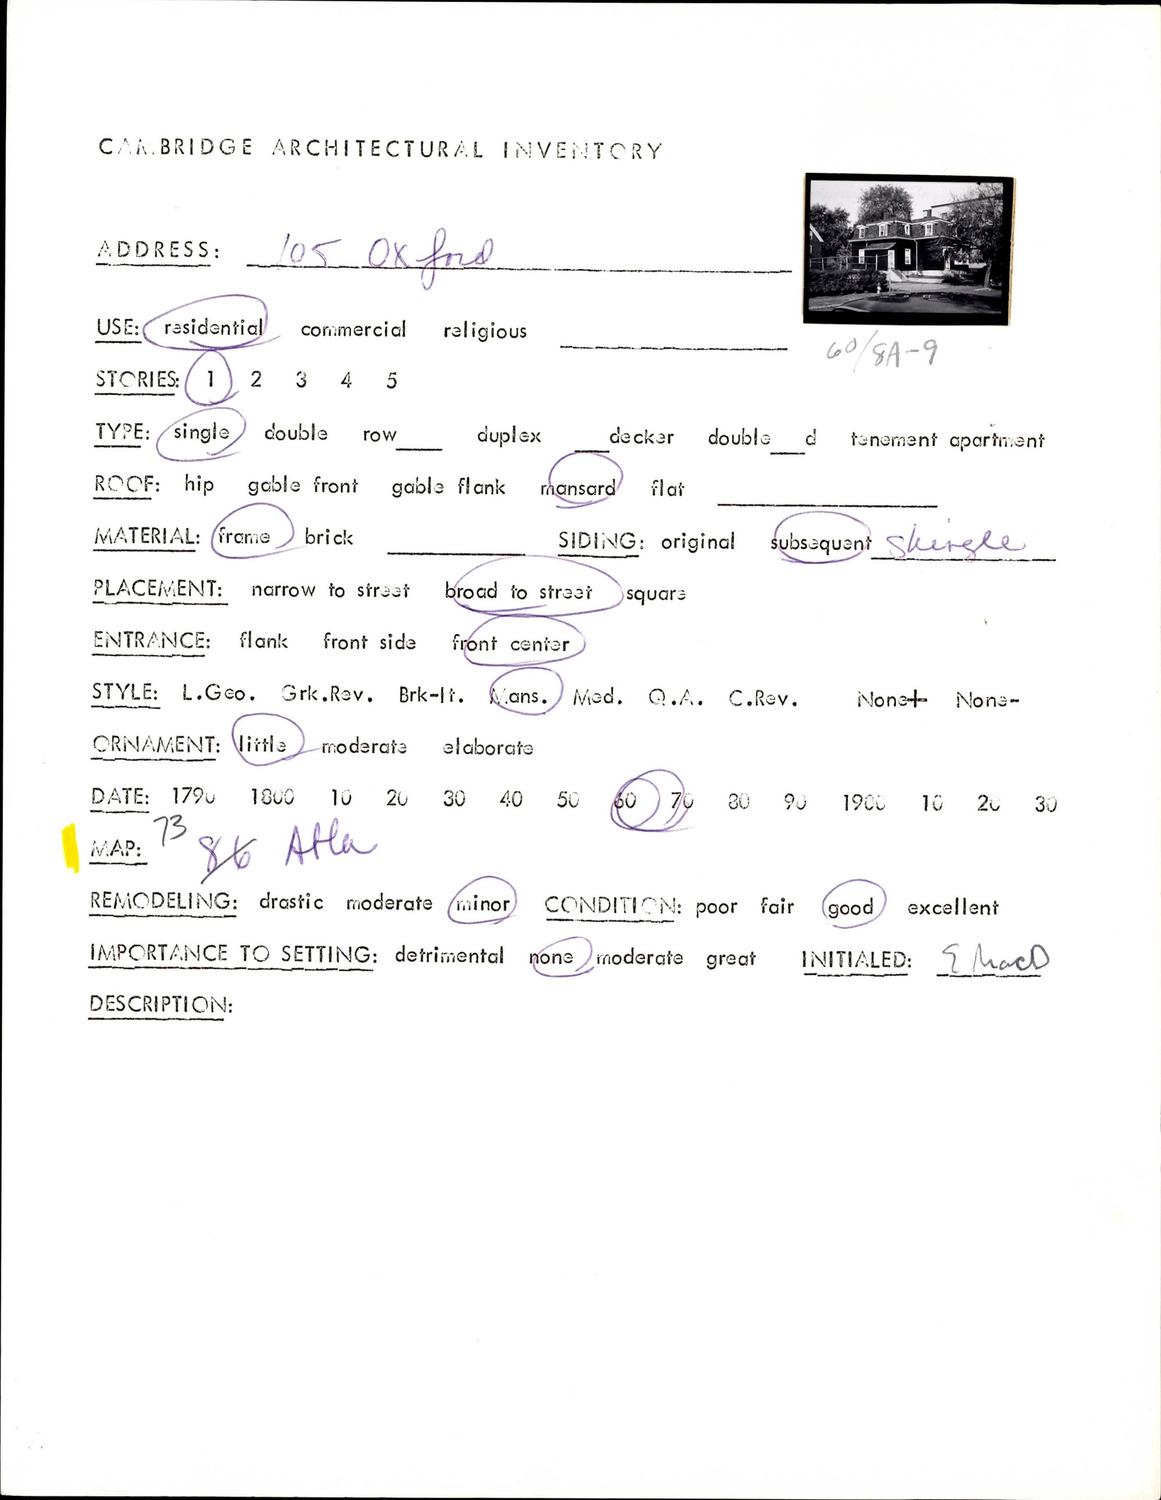 CAMBRIDGE ARCHITECTURAL INVENTORY
ADDRESS: 105 Oxford
60/8A-9
USE: residential commercial religious
STORIES: 1 2 3 4 5
TYPE: single double row___ duplex ___decker double___d tenement apartment
ROOF: hip gable front gable flank mansard flat
MATERIAL: frame brick SIDING: original subsequent Shingle
PLACEMENT: narrow to street broad to street square
ENTRANCE: flank front side front center
STYLE: L.Geo. Grk.Rev. Brk-It. Mans. Med. Q.A. C.Rev. None+ None-
ORNAMENT: little moderate elaborate
DATE: 1790 1800 10 20 30 40 50 60 70 80 90 1900 10 20 30
MAP: 73 86 Atla
REMODELING: drastic moderate minor CONDITION: poor fair good excellent
IMPORTANCE TO SETTING: detrimental none moderate great INITIALED: E MacD
DESCRIPTION: